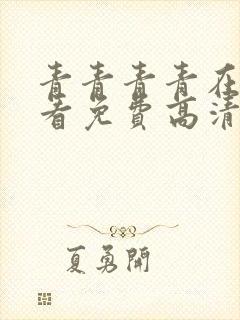 青青青青在
看免费高清
夏勇開